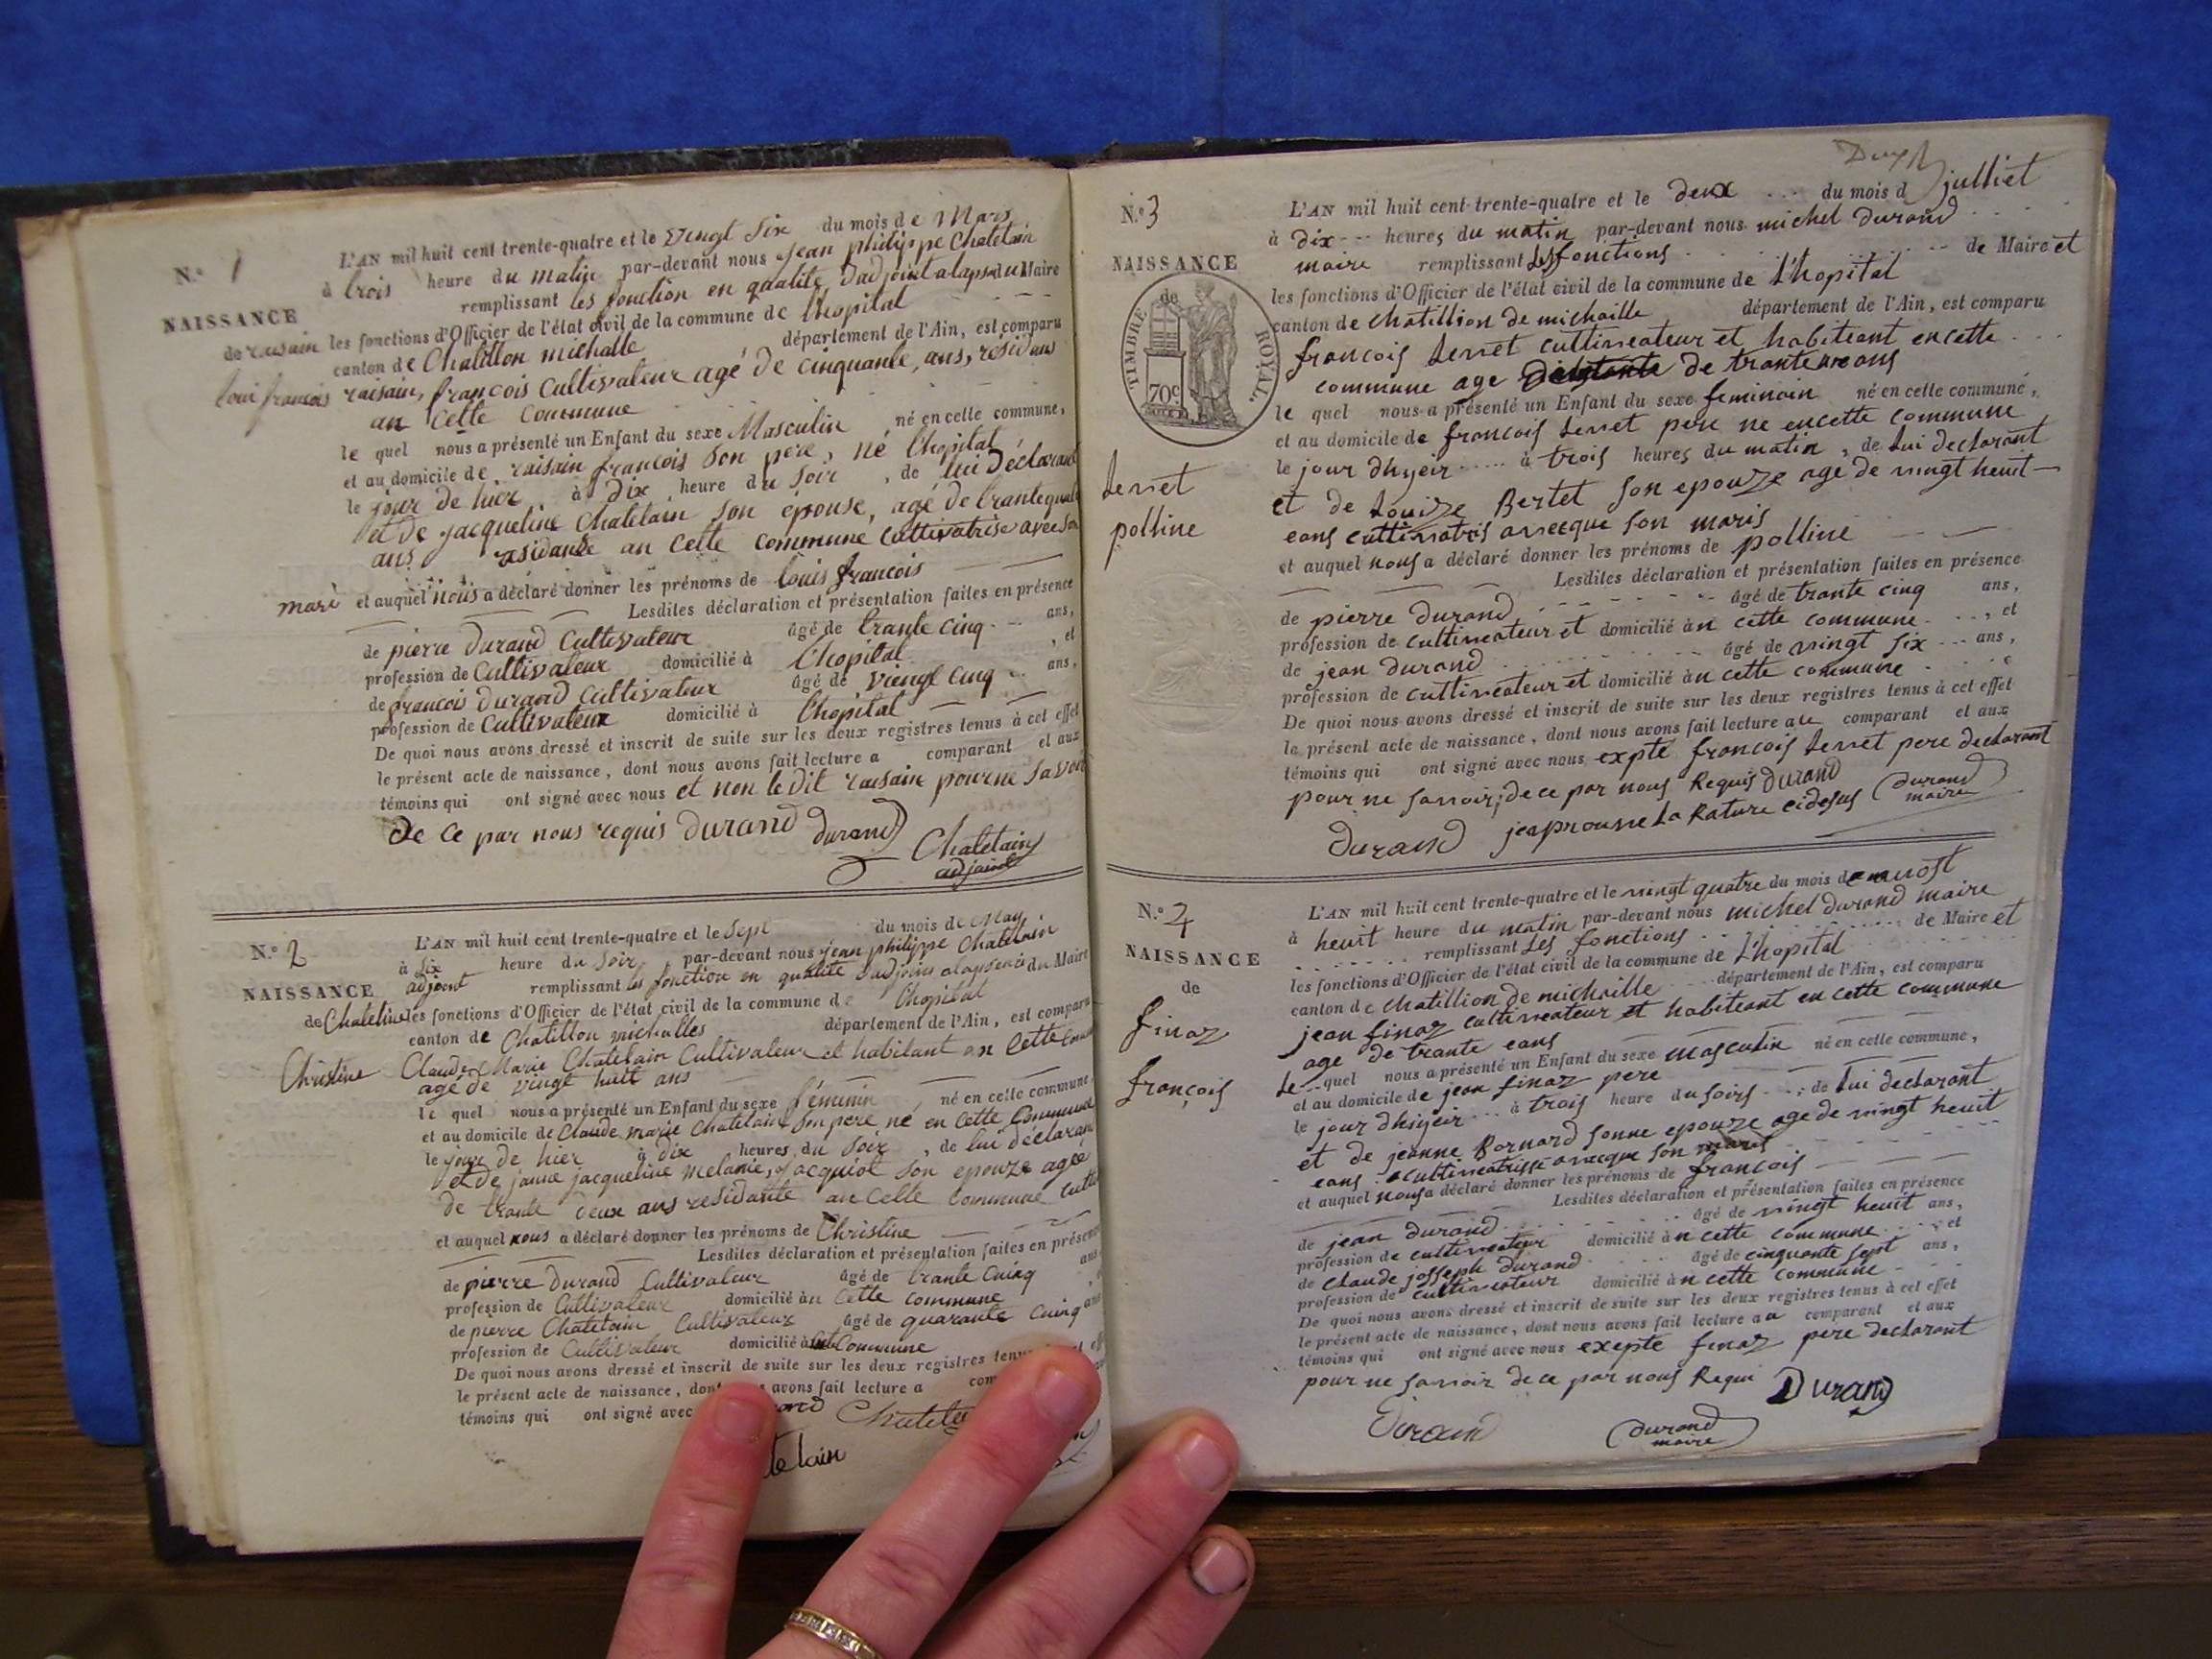 N.° 1
NAISSANCE
de raisain
loui francois
L'AN mil huit cent trente-quatre et le vingt six du mois de Mars
à trois heure du matin par-devant nous jean philippe Chatelain
remplissant les fonction en qualité dadjoint du Maire
les fonctions d'Officier de l'état civil de la commune de lhopital
canton de Chatillon michalle, département de l'Ain, est comparu
raisain, francois Cultivateur agé de cinquante, ans, résidans
an cette commune
le quel nous a présenté un Enfant du sexe Masculin né en cette commune,
et au domicile de raisain francois son père, né lhopital
le jour de hier à dix heure du soir, de lui déclarant
et de jacqueline Chatelain son épouse, agé de trante quate
ans residande an cette commune cultivatrise avec son
mari et auquel nous a déclaré donner les prénoms de louis francois
Lesdites déclaration et présentation faites en présence
de pierre durand Cultivateur âgé de trante cinq ans,
profession de Cultivateur domicilié à lhopital, et
de francois durand cultivateur âgé de viengt cinq ans,
profession de Cultivateur domicilié à lhopital
De quoi nous avons dressé et inscrit de suite sur les deux registres tenus à cet effet
le présent acte de naissance, dont nous avons fait lecture a comparant et aux
témoins qui ont signé avec nous et non le dit raisain pour ne savoir
de ce par nous requis durand durand
Chatelain
adjoint
N.° 2
NAISSANCE
de Chateline
Christine
L'AN mil huit cent trente-quatre et le sept du mois de May
à six heure du soir par-devant nous jean philippe Chatelain
adjoent remplissant les fonction en qualité dadjoins du Maire
les fonctions d'Officier de l'état civil de la commune de lhopital
canton de Chatillon michalles département de l'Ain, est comparu
Claude Marie Chatelain Cultivateur et habitant an cette
agé de vingt huit ans
le quel nous a présenté un Enfant du sexe féminin, né en cette commune
et au domicile de Claude marie Chatelain son pere né en cette Commune
le jour de hier à dix heures du soir, de lui déclaran
et de janne jacqueline melanie, jacquiot son epouze agée
de trante deux ans residante an cette commune
et auquel nous a déclaré donner les prénoms de Christine
Lesdites déclaration et présentation faites en présen
de pierre durand Cultivateur âgé de trante cuinq ans
profession de Cultivateur domicilié àn cette commune
de pierre Chatelain Cultivateur âgé de quarante cuinq ans
profession de Cultivateur domicilié à Commune
De quoi nous avons dressé et inscrit de suite sur les deux registres tenus
le présent acte de naissance, dont avons fait lecture a
témoins qui ont signé avec
N.° 3
NAISSANCE
de
TIMBRE ROYAL
70c
terret
polline
L'AN mil huit cent trente-quatre et le deux du mois d julliet
à dix heures du matin par-devant nous michel durand
maire remplissant les fonctions de Maire et
les fonctions d'Officier de l'état civil de la commune de l'hopital
canton de chatillion de michaille département de l'Ain, est comparu
francois terret cultiveateur et habiteant en cette
commune age de trante ans
le quel nous a présenté un Enfant du sexe feminain né en cette commune,
et au domicile de francois terret pere ne encette commune
le jour dhyeir à trois heures du matin, de lui declarant
et de Louize Bertet son epouze age de vingt heuit
eans cultivatris avecque son maris
et auquel nous a déclaré donner les prénoms de polline
Lesdites déclaration et présentation faites en présence
de pierre durand âgé de trante cinq ans,
profession de cultiveateur et domicilié àn cette commune, et
de jean durand âgé de vingt six ans,
profession de cultiveateur et domicilié àn cette commune
De quoi nous avons dressé et inscrit de suite sur les deux registres tenus à cet effet
le présent acte de naissance, dont nous avons fait lecture au comparant et aux
témoins qui ont signé avec nous expte francois terret pere declarant
pour ne savoir, de ce par nous Requis durand
durand jeaprouve La Rature cidesus durand
maire
N.° 4
NAISSANCE
de
finaz
françois
L'AN mil huit cent trente-quatre et le vingt quatre du mois de
à heuit heure du matin par-devant nous michel durand maire
remplissant Les fonctions de Maire et
les fonctions d'Officier de l'état civil de la commune de L'hopital
canton de chatillion de michaille département de l'Ain, est comparu
jean finaz cultiveateur et habiteant en cette commune
age de trante eans
Le quel nous a présenté un Enfant du sexe masculin né en cette commune,
et au domicile de jean finaz pere
le jour dhiyeir à trois heure du soirs, de lui declarant
et de jeanne Bornard sonne epouze age de vingt heuit
eans cultiveatrisse avecque son maris
et auquel nous a déclaré donner les prénoms de francois
Lesdites déclaration et présentation faites en présence
de jean durand âgé de vingt heuit ans,
profession de cultiveateur domicilié àn cette commune, et
de claude josseph durand âgé de cinquante sept ans,
profession de cultiveateur domicilié àn cette commune
De quoi nous avons dressé et inscrit de suite sur les deux registres tenus à cet effet
le présent acte de naissance, dont nous avons fait lecture a a comparant et aux
témoins qui ont signé avec nous exepte finaz pere declarant
pour ne savoir de ce par nous Requi Durand
Durand durand
maire